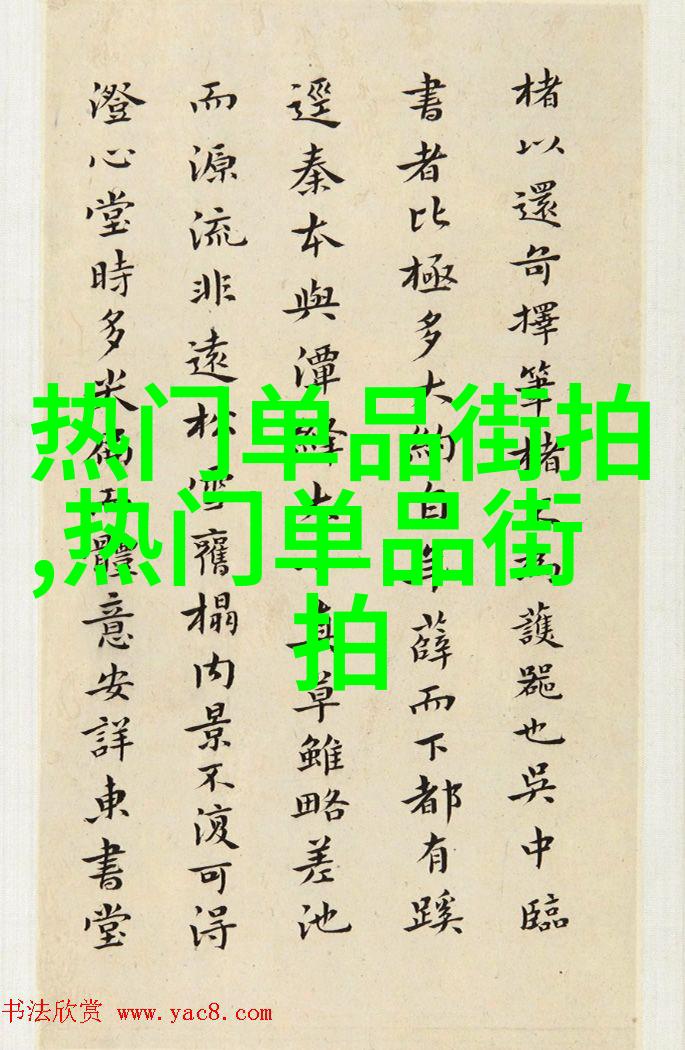 楮以還奇擇筆楮護器也吳中臨
書者比極多大約自薛而下都有蹊
逕秦本與潭絳真草雖略差池
而源流非遠松雪舊榻内景不復可得
澄心堂時多體意安詳東書堂
热门单品街拍
,热门单品街
拍
书法欣赏 www.yac8.com